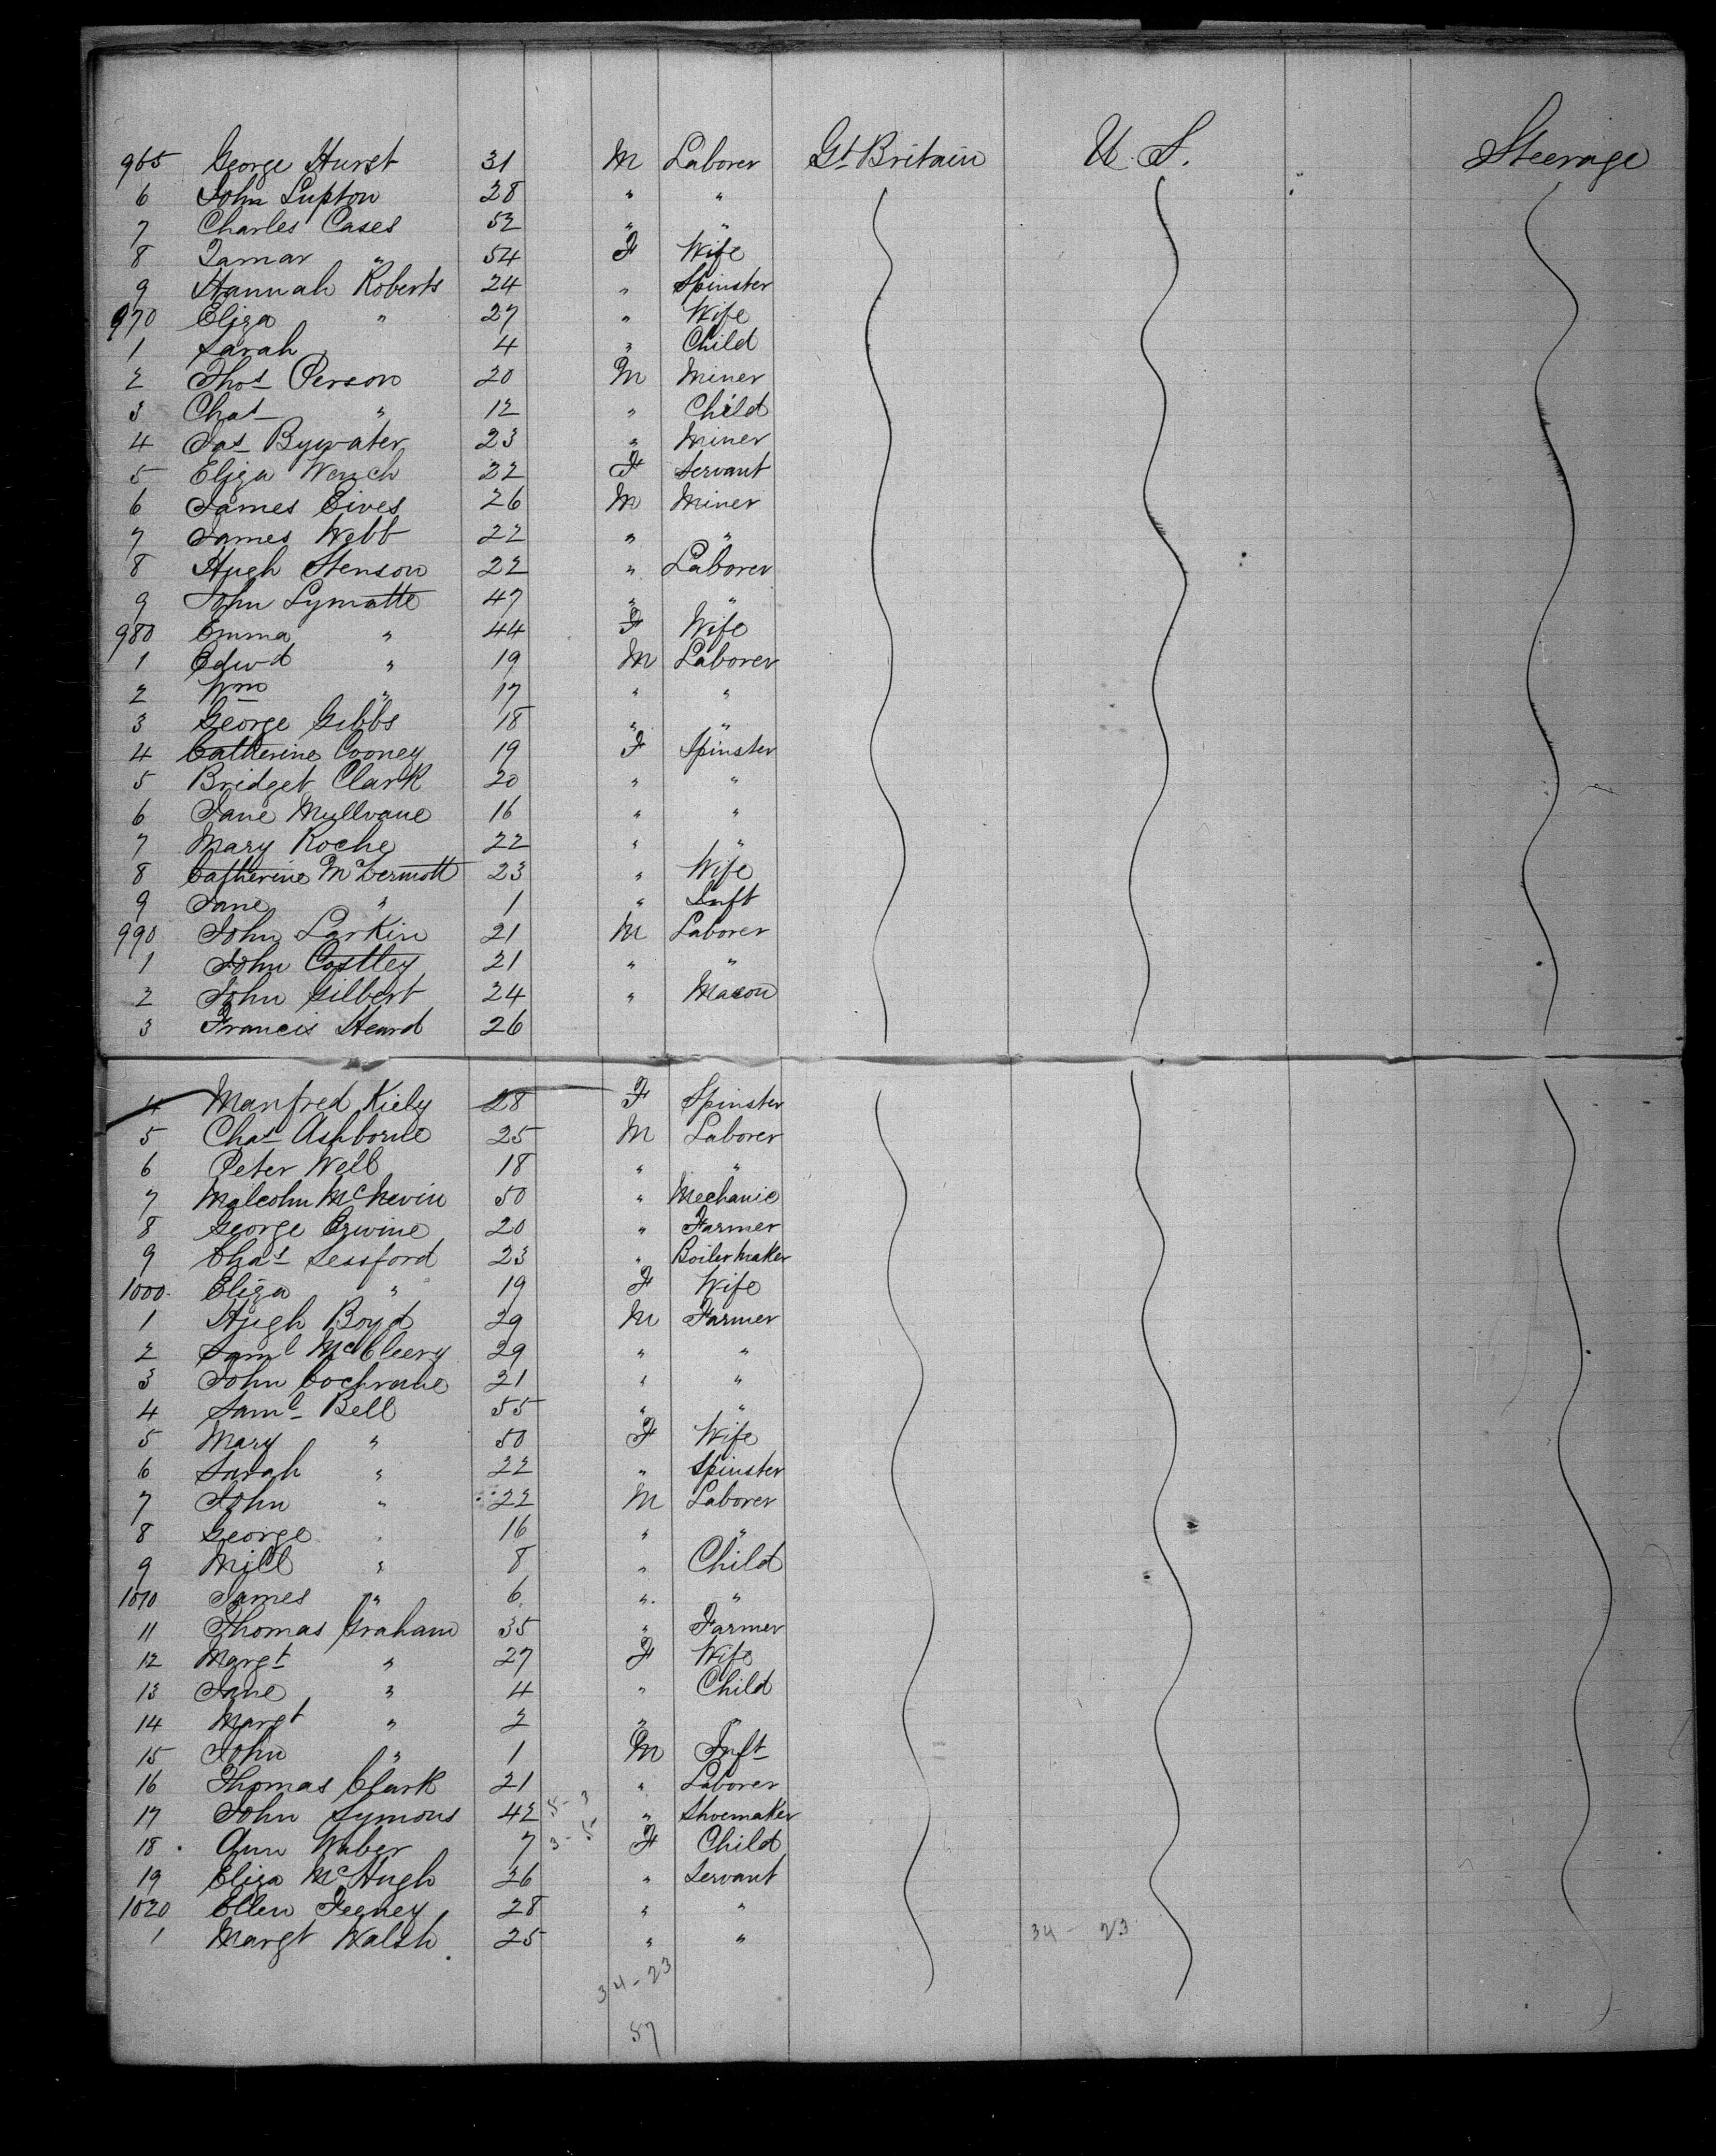 965 George Hurst 31 M Laborer Gt Britain U. S. Steerage
6 John Lupton 28 " "
7 Charles Cases 52 " "
8 Tamar " 54 F Wife
9 Hannah Roberts 24 " Spinster
970 Eliza " 27 " Wife
1 Sarah 4 " Child
2 Thos Person 20 M Miner
3 Chas " 12 " Child
4 Jas Bywater 23 " Miner
5 Eliza 22 F Servant
6 James Eives 26 M Miner
7 James Webb 22 " "
8 Hugh Stenson 22 " Laborer
9 John Lymatte 47 " "
980 Emma " 44 F Wife
1 Edwd " 19 M Laborer
2 Wm " 17 " "
3 George Gibbs 18 " "
4 Catherine Cooney 19 F Spinster
5 Bridget Clark 20 " "
6 Jane Mullvane 16 " "
7 Mary Roche 22 " "
8 Catherine McDermott 23 " Wife
9 Jane " 1 " Inft
990 John Larkin 21 M Laborer
1 John Costley 21 " "
2 John Gilbert 24 " Mason
3 Francis Heard 26
4 Manfred Kiely 28 F Spinster
5 Chas Ashborne 25 M Laborer
6 Peter Well 18 " "
7 Malcolm McNevin 50 " Mechanic
8 George Erwine 20 " Farmer
9 Chas Sessford 23 " Boilermaker
1000. Eliza " 19 F Wife
1 Hugh Boyd 29 M Farmer
2 Saml McCleery 29 " "
3 John Cochrane 21 " "
4 Saml Bell 55 " "
5 Mary " 50 F Wife
6 Sarah " 22 " Spinster
7 John " 22 M Laborer
8 George . 16 " "
9 Mill " 8 " Child
1010 James " 6 " "
11 Thomas Graham 35 " Farmer
12 Margt " 27 F Wife
13 Jane " 4 " Child
14 Margt " 2 " "
15 John " 1 M Inft
16 Thomas Clark 21 " Laborer
17 John Symons 42 5-3 " Shoemaker
18 Ann Waber 7 3-5 F Child
19 Eliza McHugh 26 " Servant
1020 Ellen Feeney 28 " "
1 Margt Walsh 25 " " 34 - 23
34-23
57